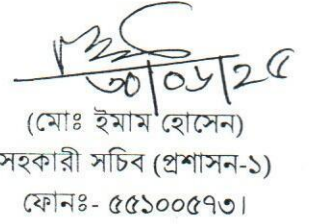 ৩০|০৬|২৫
(মোঃ ইমাম হোসেন)
সহকারী সচিব (প্রশাসন-১)
ফোনঃ- ৫৫১০০৫৭৩।